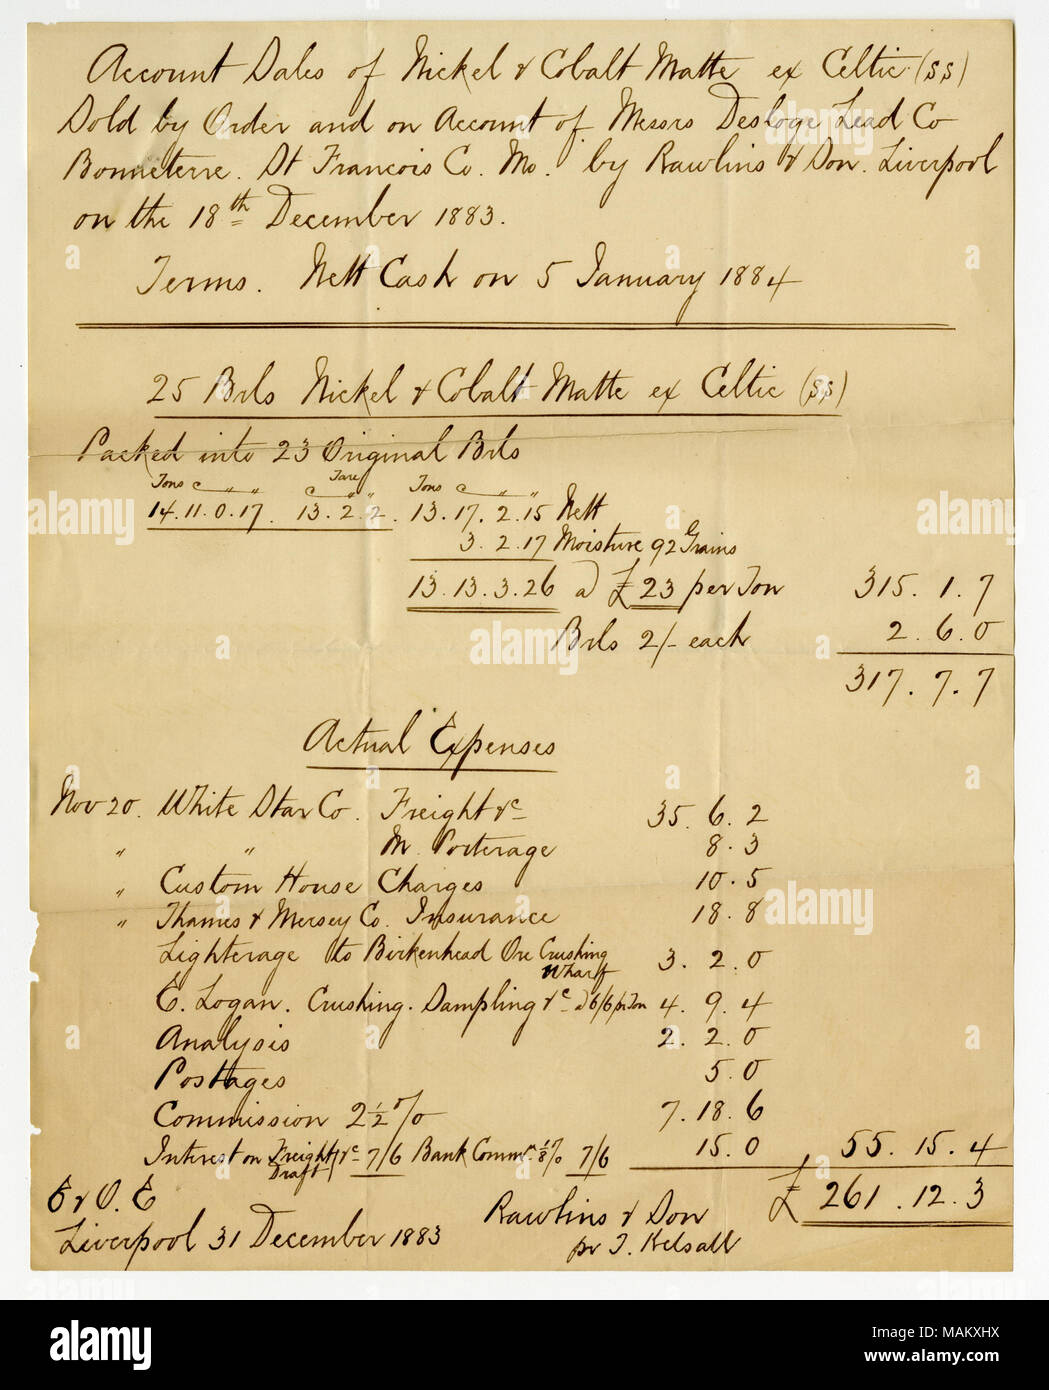 Account Sales of Nickel & Cobalt Matte ex Celtic (SS)
Sold by Order and on Account of Messrs Desloge Lead Co
Bonneterre. St Francois Co. Mo. by Rawlins & Son. Liverpool
on the 18th December 1883.
Terms. Nett Cash on 5 January 1884
25 Brls Nickel & Cobalt Matte ex Celtic (SS)
Packed into 23 Original Brls
Tons c " " Tare c " " Tons c " "
14.11.0.17. 13.2.2. 13.17.2.15 Nett
3.2.17 Moisture 92 Grains
13.13.3.26 a) £23 per Ton 315.1.7
Brls 2/- each 2.6.0
317.7.7
Actual Expenses
Nov 20. White Star Co. Freight &c 35.6.2
" " M. Porterage 8.3
" Custom House Charges 10.5
" Thames & Mersey Co. Insurance 18.8
Lighterage to Birkenhead Ore Crushing Wharf 3.2.0
E. Logan. Crushing. Sampling &c a) 6/6 pr Ton 4.9.4
Analysis 2.2.0
Postages 5.0
Commission 2½ % 7.18.6
Interest on Freight Draft &c 7/6 Bank Commn ⅛% 7/6 15.0 55.15.4
£261.12.3
E & O. E
Rawlins & Son
Liverpool 31 December 1883
pr T. Kelsall
alamy
Image ID: MAKXHX
www.alamy.com